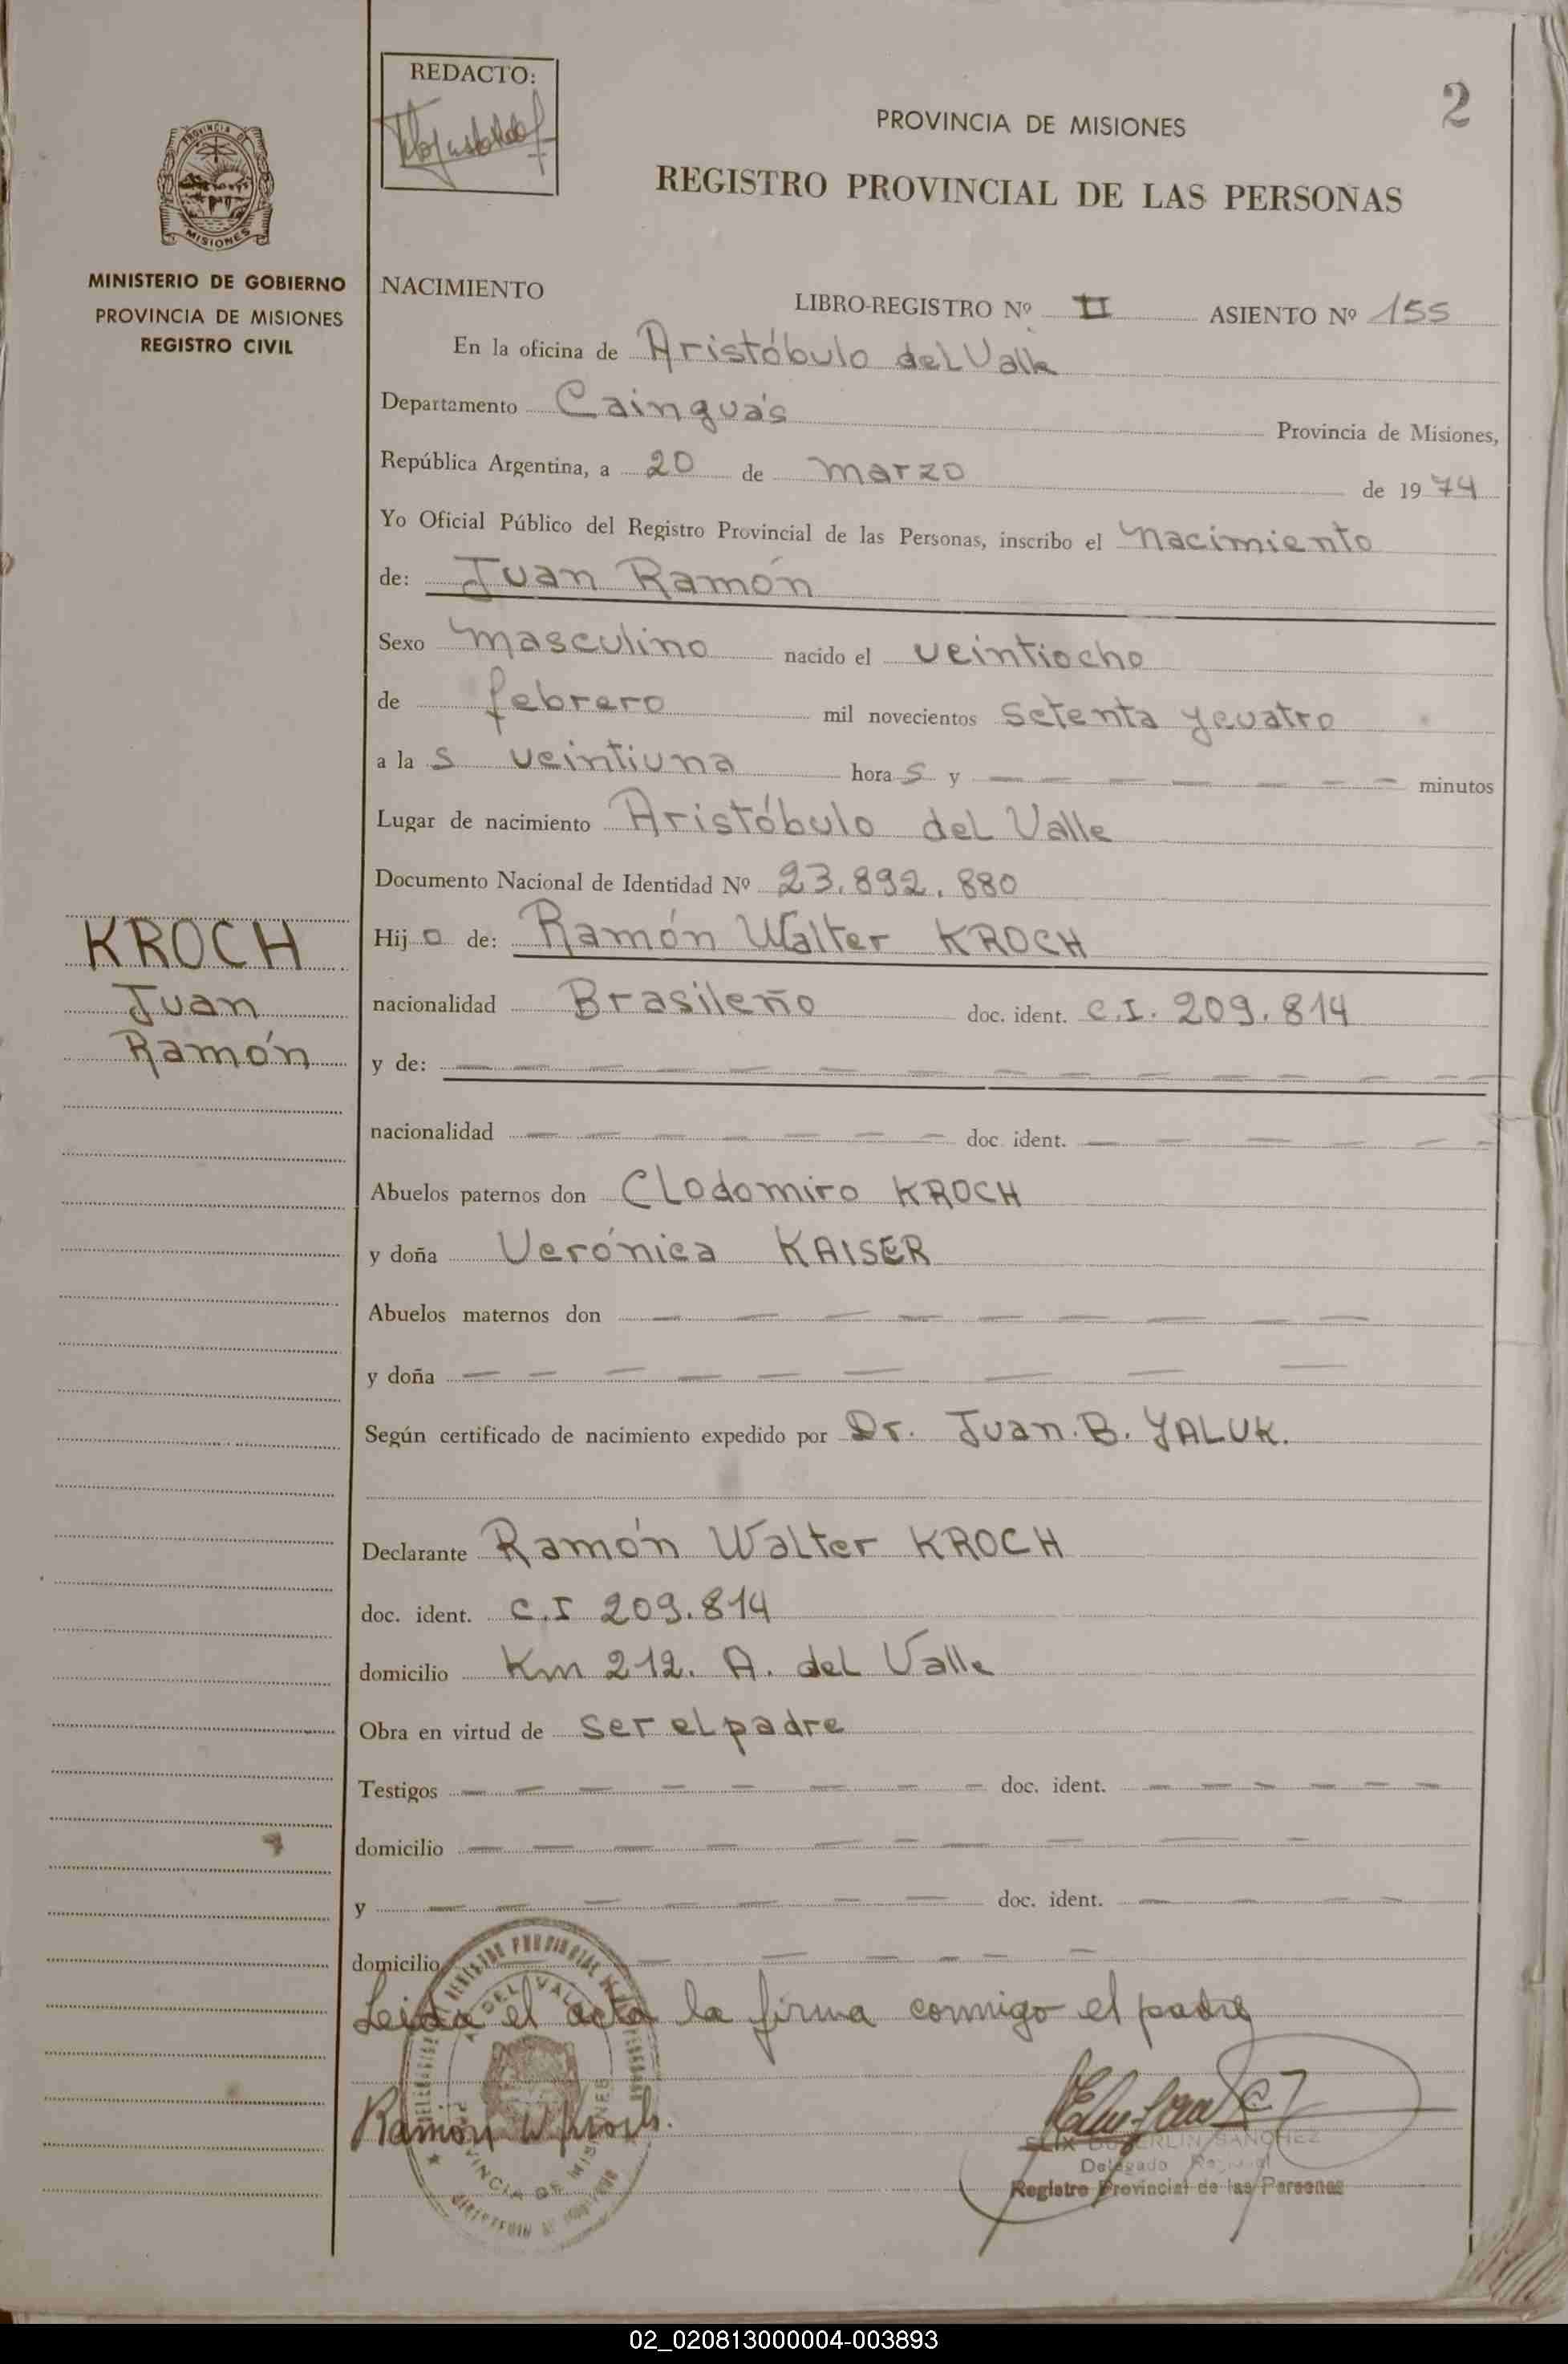 REDACTO:
2
PROVINCIA DE MISIONES
REGISTRO PROVINCIAL DE LAS PERSONAS
PROVINCIA DE
MISIONES
MINISTERIO DE GOBIERNO
PROVINCIA DE MISIONES
REGISTRO CIVIL
NACIMIENTO
LIBRO-REGISTRO Nº II ASIENTO Nº 155
En la oficina de Aristóbulo del Valle
Departamento Cainguás Provincia de Misiones,
República Argentina, a 20 de marzo de 1974
Yo Oficial Público del Registro Provincial de las Personas, inscribo el nacimiento
de: Juan Ramón
Sexo masculino nacido el veintiocho
de febrero mil novecientos setenta y cuatro
a la s veintiuna hora s y — — — — — — — minutos
Lugar de nacimiento Aristóbulo del Valle
Documento Nacional de Identidad Nº 23.892.880
KROCH
Juan
Ramón
Hij o de: Ramón Walter KROCH
nacionalidad Brasileño doc. ident. C.I. 209.814
y de: — — — — — — — — — — — — —
nacionalidad — — — — — — — doc. ident. — — — — — —
Abuelos paternos don Clodomiro KROCH
y doña Verónica KAISER
Abuelos maternos don — — — — — — — — —
y doña — — — — — — — — —
Según certificado de nacimiento expedido por Dr. Juan. B. YALUK.
Declarante Ramón Walter KROCH
doc. ident. C.I 209.814
domicilio Km 212. A. del Valle
Obra en virtud de ser el padre
Testigos — — — — — — — — doc. ident. — — — — — —
domicilio — — — — — — — — — —
y — — — — — — — doc. ident. — — — —
domicilio — — — — — —
Leida el acta la firma conmigo el padre
REGISTRO PROVINCIAL
A. DEL VALLE
PROVINCIA DE MISIONES
Ramón W Kroch.
SANCHEZ
Delegado
Registro Provincial de las Personas
02_020813000004-003893